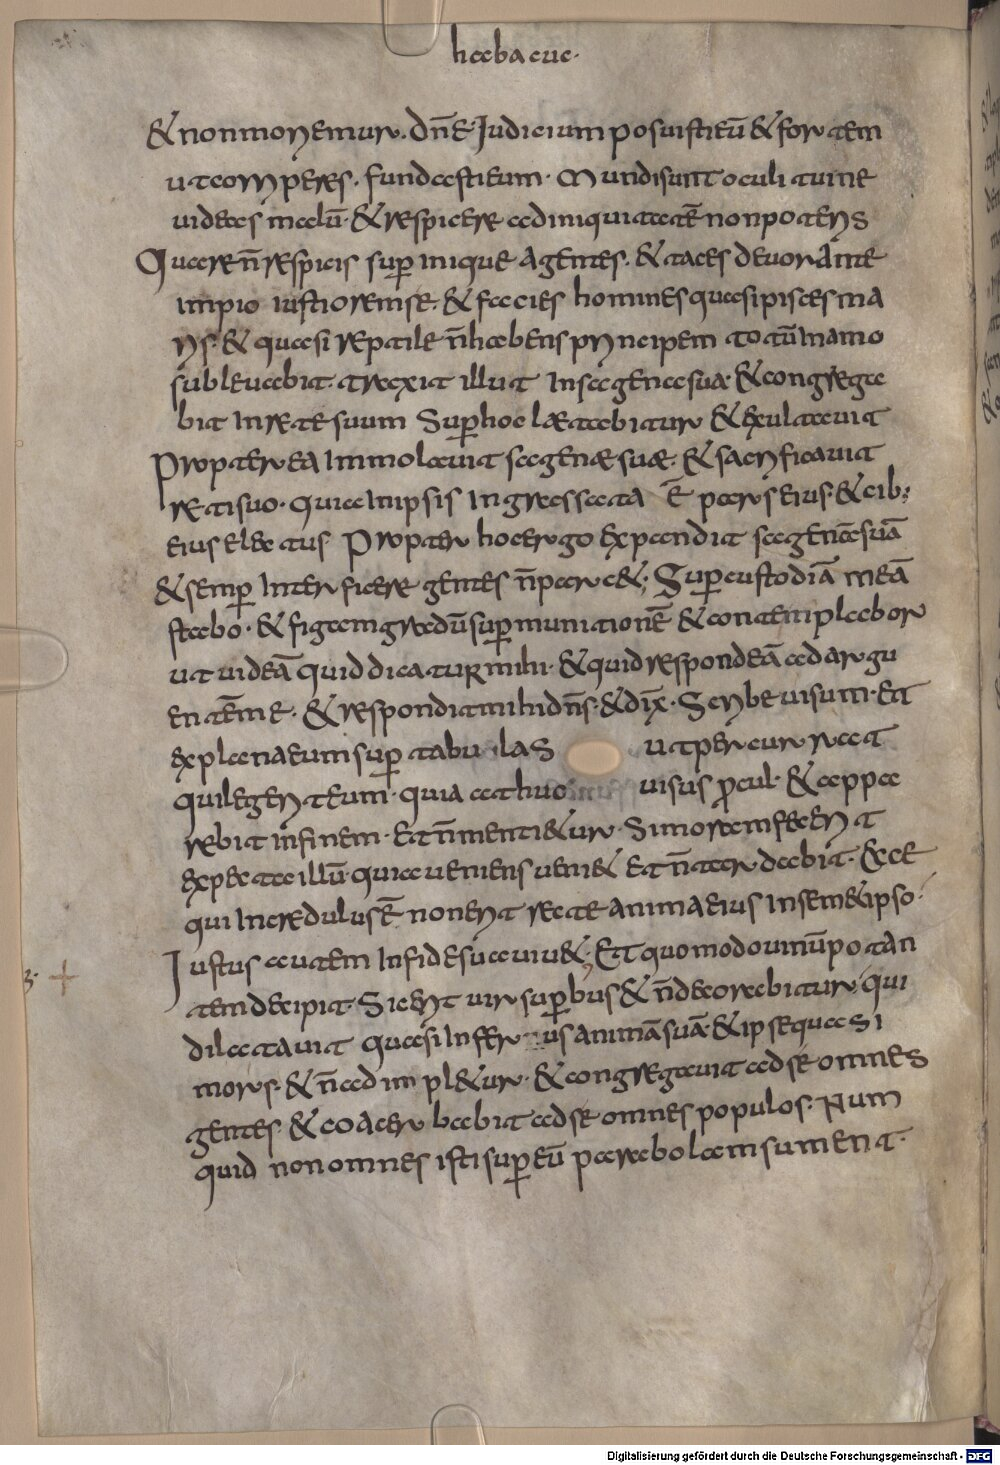 habacuc·
& non moriemur. dn̄e Iudicium posuisti eū & fortem
ut corriperes. fundasti eum. Mundi sunt oculi tui ne
videas malū. & respicere ad iniquitatē non potens
Quare n̄ respicis sup̱ inique agentes. & taces devorante
impio iustiorem se. & facies homines quasi pisces ma
ris. & quasi reptile n̄ habens principem totū In amo
sublevabit. traxit illut In sagena sua. & congrega
bit In rete suum Sup̱ hoc lætabitur & exultavit
Propterea Immolavit sagenæ suæ. & sacrificavit
reti suo. quia In ipsis Ingrassata ē pars eius. & cib;
eius electus Propter hoc ergo expandit sagenā suā
& semp̱ Interficere gentes n̄ parc&; Sup̱ custodiā meā
stabo. & figam gradū sup̱ munitionē & contemplabor
ut videā quid dicatur mihi. & quid respondeā ad argu
entēme. & respondit mihi dn̄s. & dix̄. Scribe visum. Et
explana eum sup̱ tabulas ut percurrat
qui legerit eum. quia adhuc visus p̱cul. & appa
rebit in finem. Et n̄ menti&ur. Si moram fecerit
expecta illū. quia veniens veni& Et n̄ tardabit. Ecce
qui Incredulus ē non erit recta anima eius In sem&ipso.
Iustus autem In fide sua viv&; Et quomodo vinū potan
tem decipit. Sic erit vir sup̱bus & n̄ decorabitur. qui
dilatavit quasi Infernus animā suā. & ipse quasi
mors. & n̄ adimpl&ur. & congregavit ad se omnes
gentes. & coacervabit ad se omnes populos. Num
quid non omnes isti sup̱ eū parabolam sument.
3· +
Digitalisierung gefördert durch die Deutsche Forschungsgemeinschaft - DFG